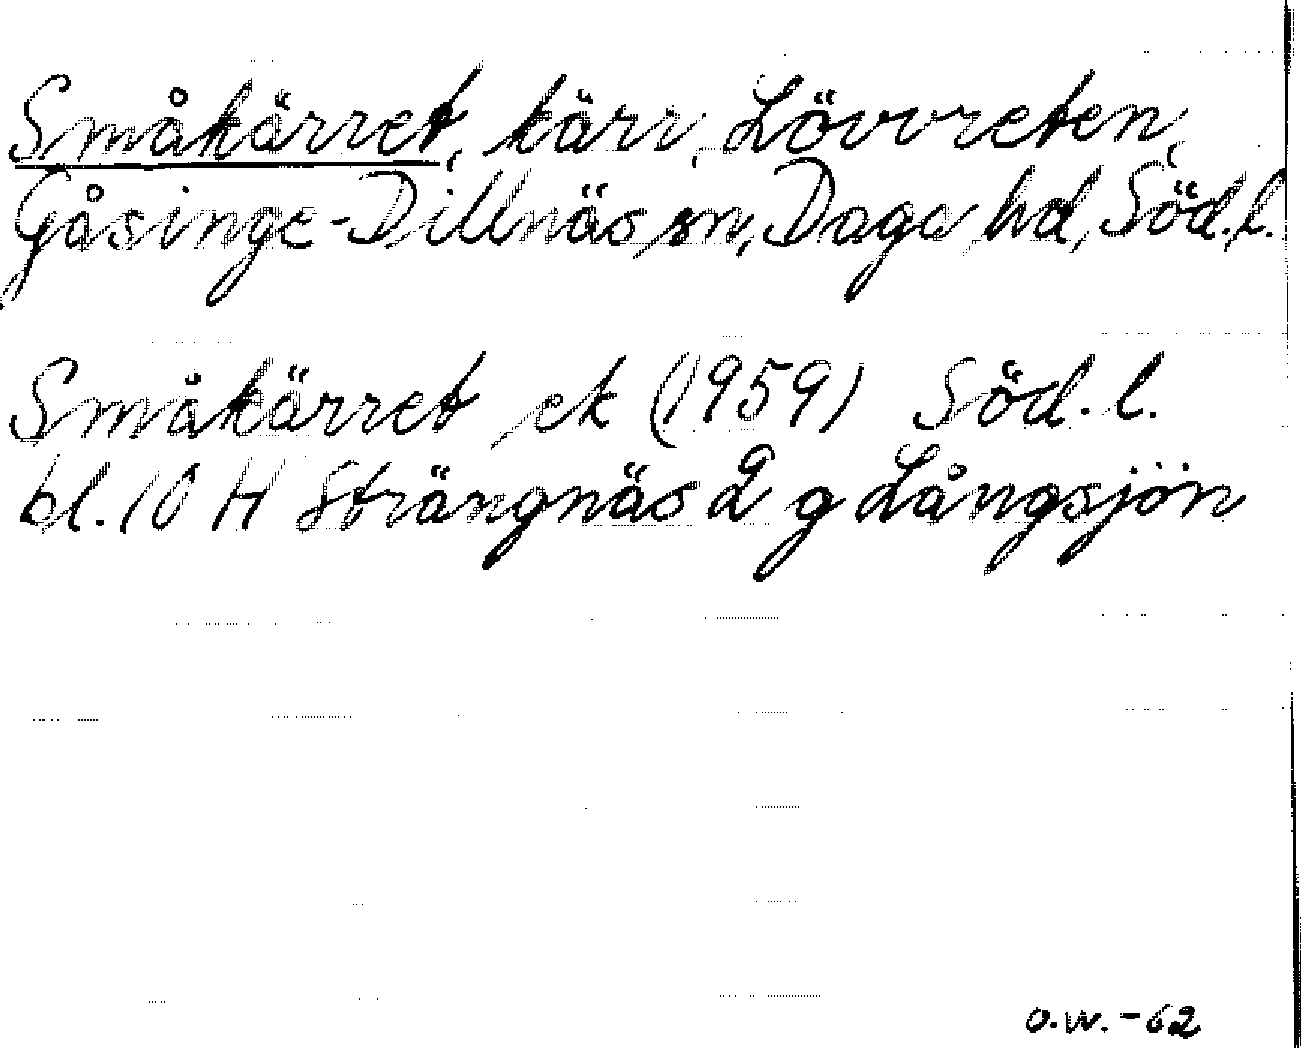 Småkärret, kärr, Lövvreten,
Gåsinge-Dillnäs sn, Daga hd, Söd.l.
Småkärret ek (1959) Söd.l.
bl. 10 H Strängnäs 2 g Långsjön
O.W.-62